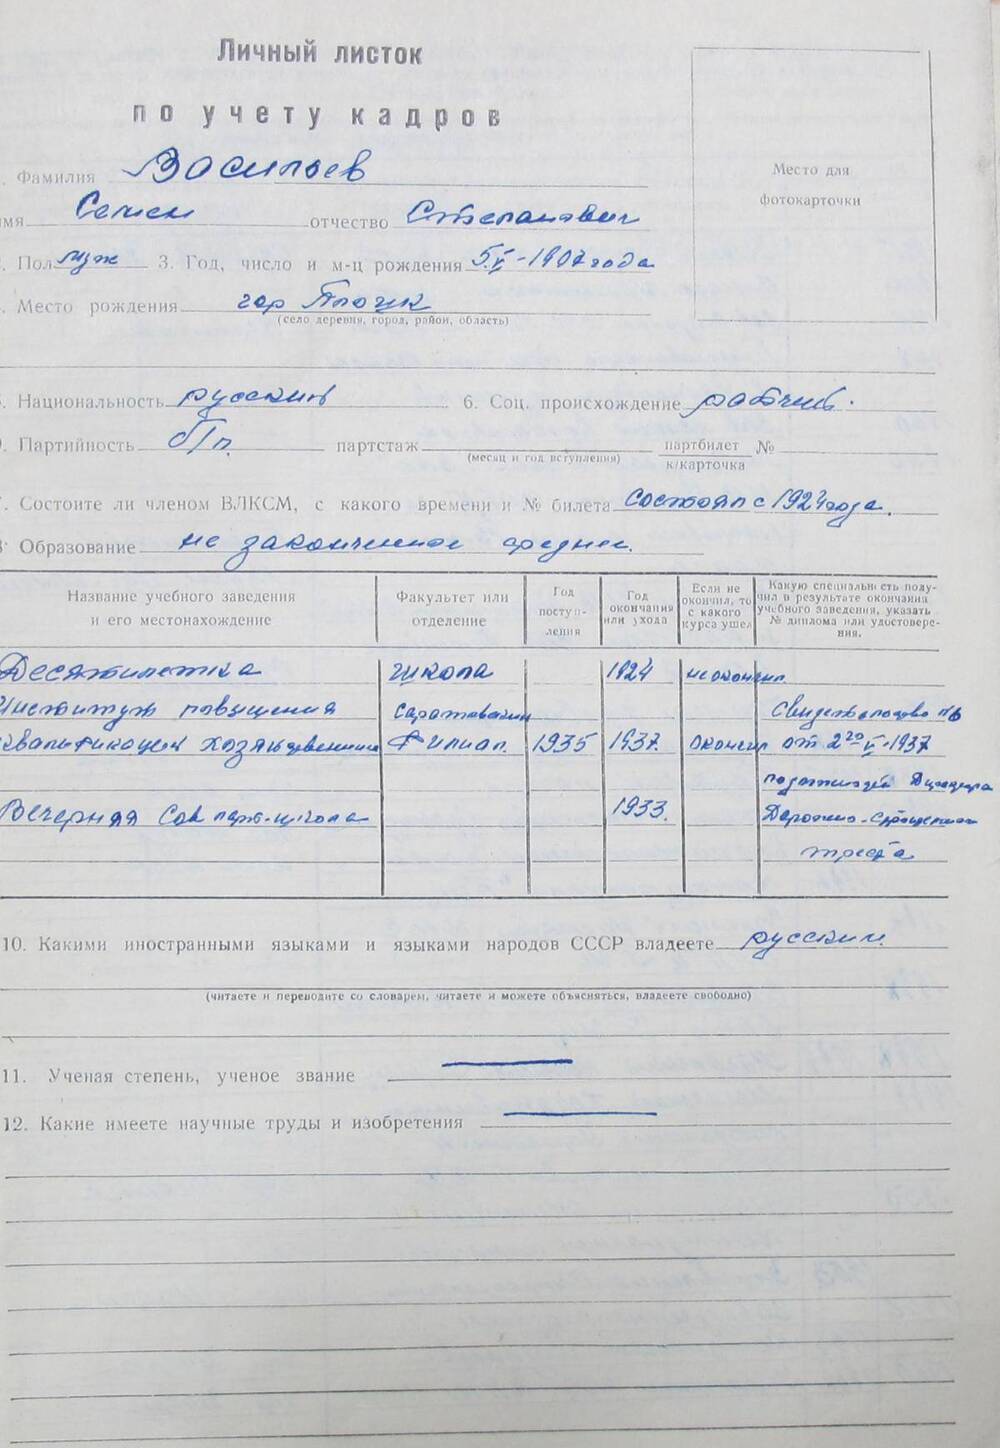 Личный листок
по учету кадров
Фамилия Васильев
мя Семен отчество Степанович
Место для
фотокарточки
. Пол муж 3. Год, число и м-ц рождения 5.V-1907 года
. Место рождения гор Плоцк
(село деревня, город, район, область)
. Национальность русский 6. Соц. происхождение рабочий.
. Партийность б/п. партстаж (месяц и год вступления) партбилет к/карточка №
7. Состоите ли членом ВЛКСМ, с какого времени и № билета состоял с 1924 года.
8 Образование не законченное среднее.
Название учебного заведения и его местонахождение
Факультет или отделение
Год поступления
Год окончания или ухода
Если не окончил, то с какого курса ушел
Какую специальность получил в результате окончания учебного заведения, указать № диплома или удостоверения.
Десятилетка школа 1924 не окончил
Институт повышения саратовский Свидетельство
квалификации хозяйственников Филиал. 1935 1937. окончил от 2го V-1937
Вечерняя Сов парт-школа 1933. Дорожно-строительного
треста
10. Какими иностранными языками и языками народов СССР владеете русским.
(читаете и переводите со словарем, читаете и можете объясняться, владеете свободно)
11. Ученая степень, ученое звание
12. Какие имеете научные труды и изобретения